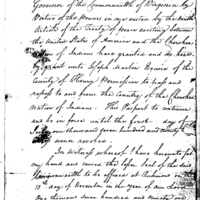 Governor of the Commonwealth of Virginia by
Virtue of the power in me vested by the ninth
Article of the Treaty of peace existing between
the United States of America and the Cherokee
of Indians have granted and do here-
by grant unto Joseph Martin Esquire of the
County of Henry Permission to pass and
repass to and from the country of the Cherokee
Nation of Indians. This Passport to continue
and be in force until the first day of
one thousand seven hundred and ninety
seven ensues.
In Witness whereof I have hereunto set
my hand and caused the lesser Seal of the said
Commonwealth to be affixed at Richmond on the
10th day of December in the year of our Lord
One thousand seven hundred and ninety